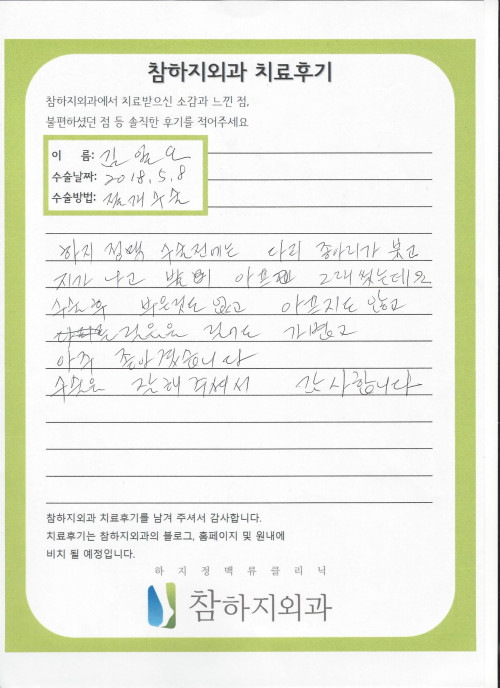 참하지외과 치료후기
참하지외과에서 치료받으신 소감과 느낀 점,
불편하셨던 점 등 솔직한 후기를 적어주세요
이 름: 김
수술날짜: 2018. 5. 8
수술방법: 절개수술
하지 정맥 수술전에는 다리 종아리가 붓고
지가 나고 발이 아프 그래 는데요
수술후 부은것도 없고 아프지도 않고
걸음을 걸어도 가볍고
아주 좋아졌습니다
수술을 잘해주셔서 감사합니다
참하지외과 치료후기를 남겨 주셔서 감사합니다.
치료후기는 참하지외과의 블로그, 홈페이지 및 원내에
비치 될 예정입니다.
하지정맥류클리닉
참하지외과